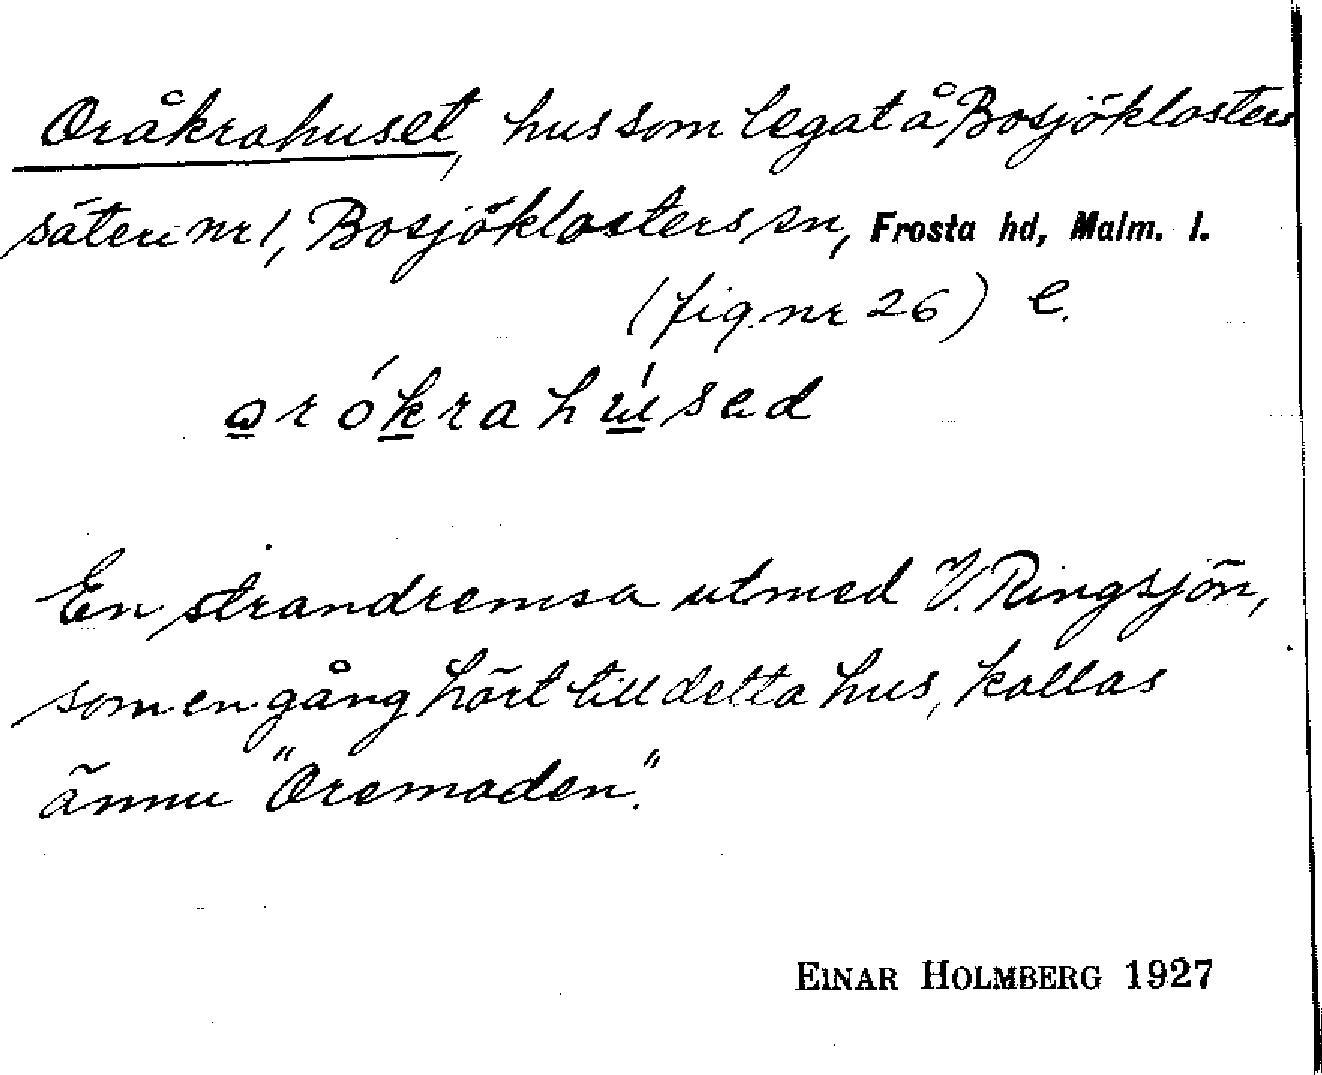 Oråkrahuset, hus som legat å Bosjöklosters
säteri nr 1, Bosjöklosters sn, Frosta hd, Malm. l.
(fig. nr 26) e.
orókrahúsed
En strandremsa utmed V. Ringsjön,
som en gång hört till detta hus, kallas
ännu "Oremaden".
EINAR HOLMBERG 1927